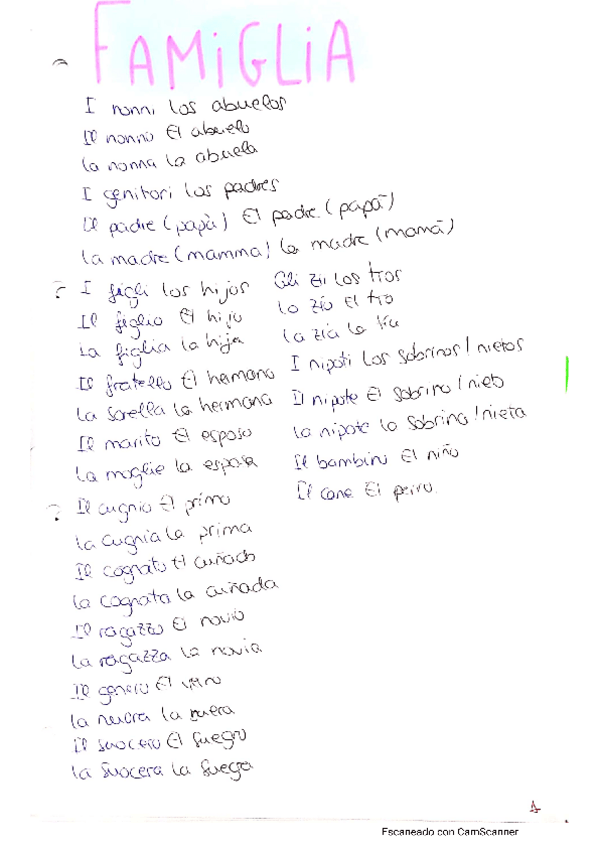 FAMiGLiA
I nonni los abuelos
Il nonno El abuelo
La nonna la abuela
I genitori los padres
Il padre (papà) El padre (papá)
La madre (mamma) la madre (mamá)
? I figli los hijos
Il figlio El hijo
La figlia la hija
Il fratello El hermano
La sorella la hermana
Il marito El esposo
La moglie la esposa
? Il cugnio El primo
La cugnia la prima
Il cognato El cuñado
La cognata la cuñada
Il ragazzo El novio
La ragazza la novia
Il genero El
La nuora la nuera
Il suocero El suegro
La suocera la suegra
Gli zii los tios
Lo zio El tio
La zia la tia
I nipoti los sobrinos / nietos
Il nipote El sobrino / nieto
La nipote la sobrina / nieta
Il bambino El niño
Il cane El perro
1
Escaneado con CamScanner